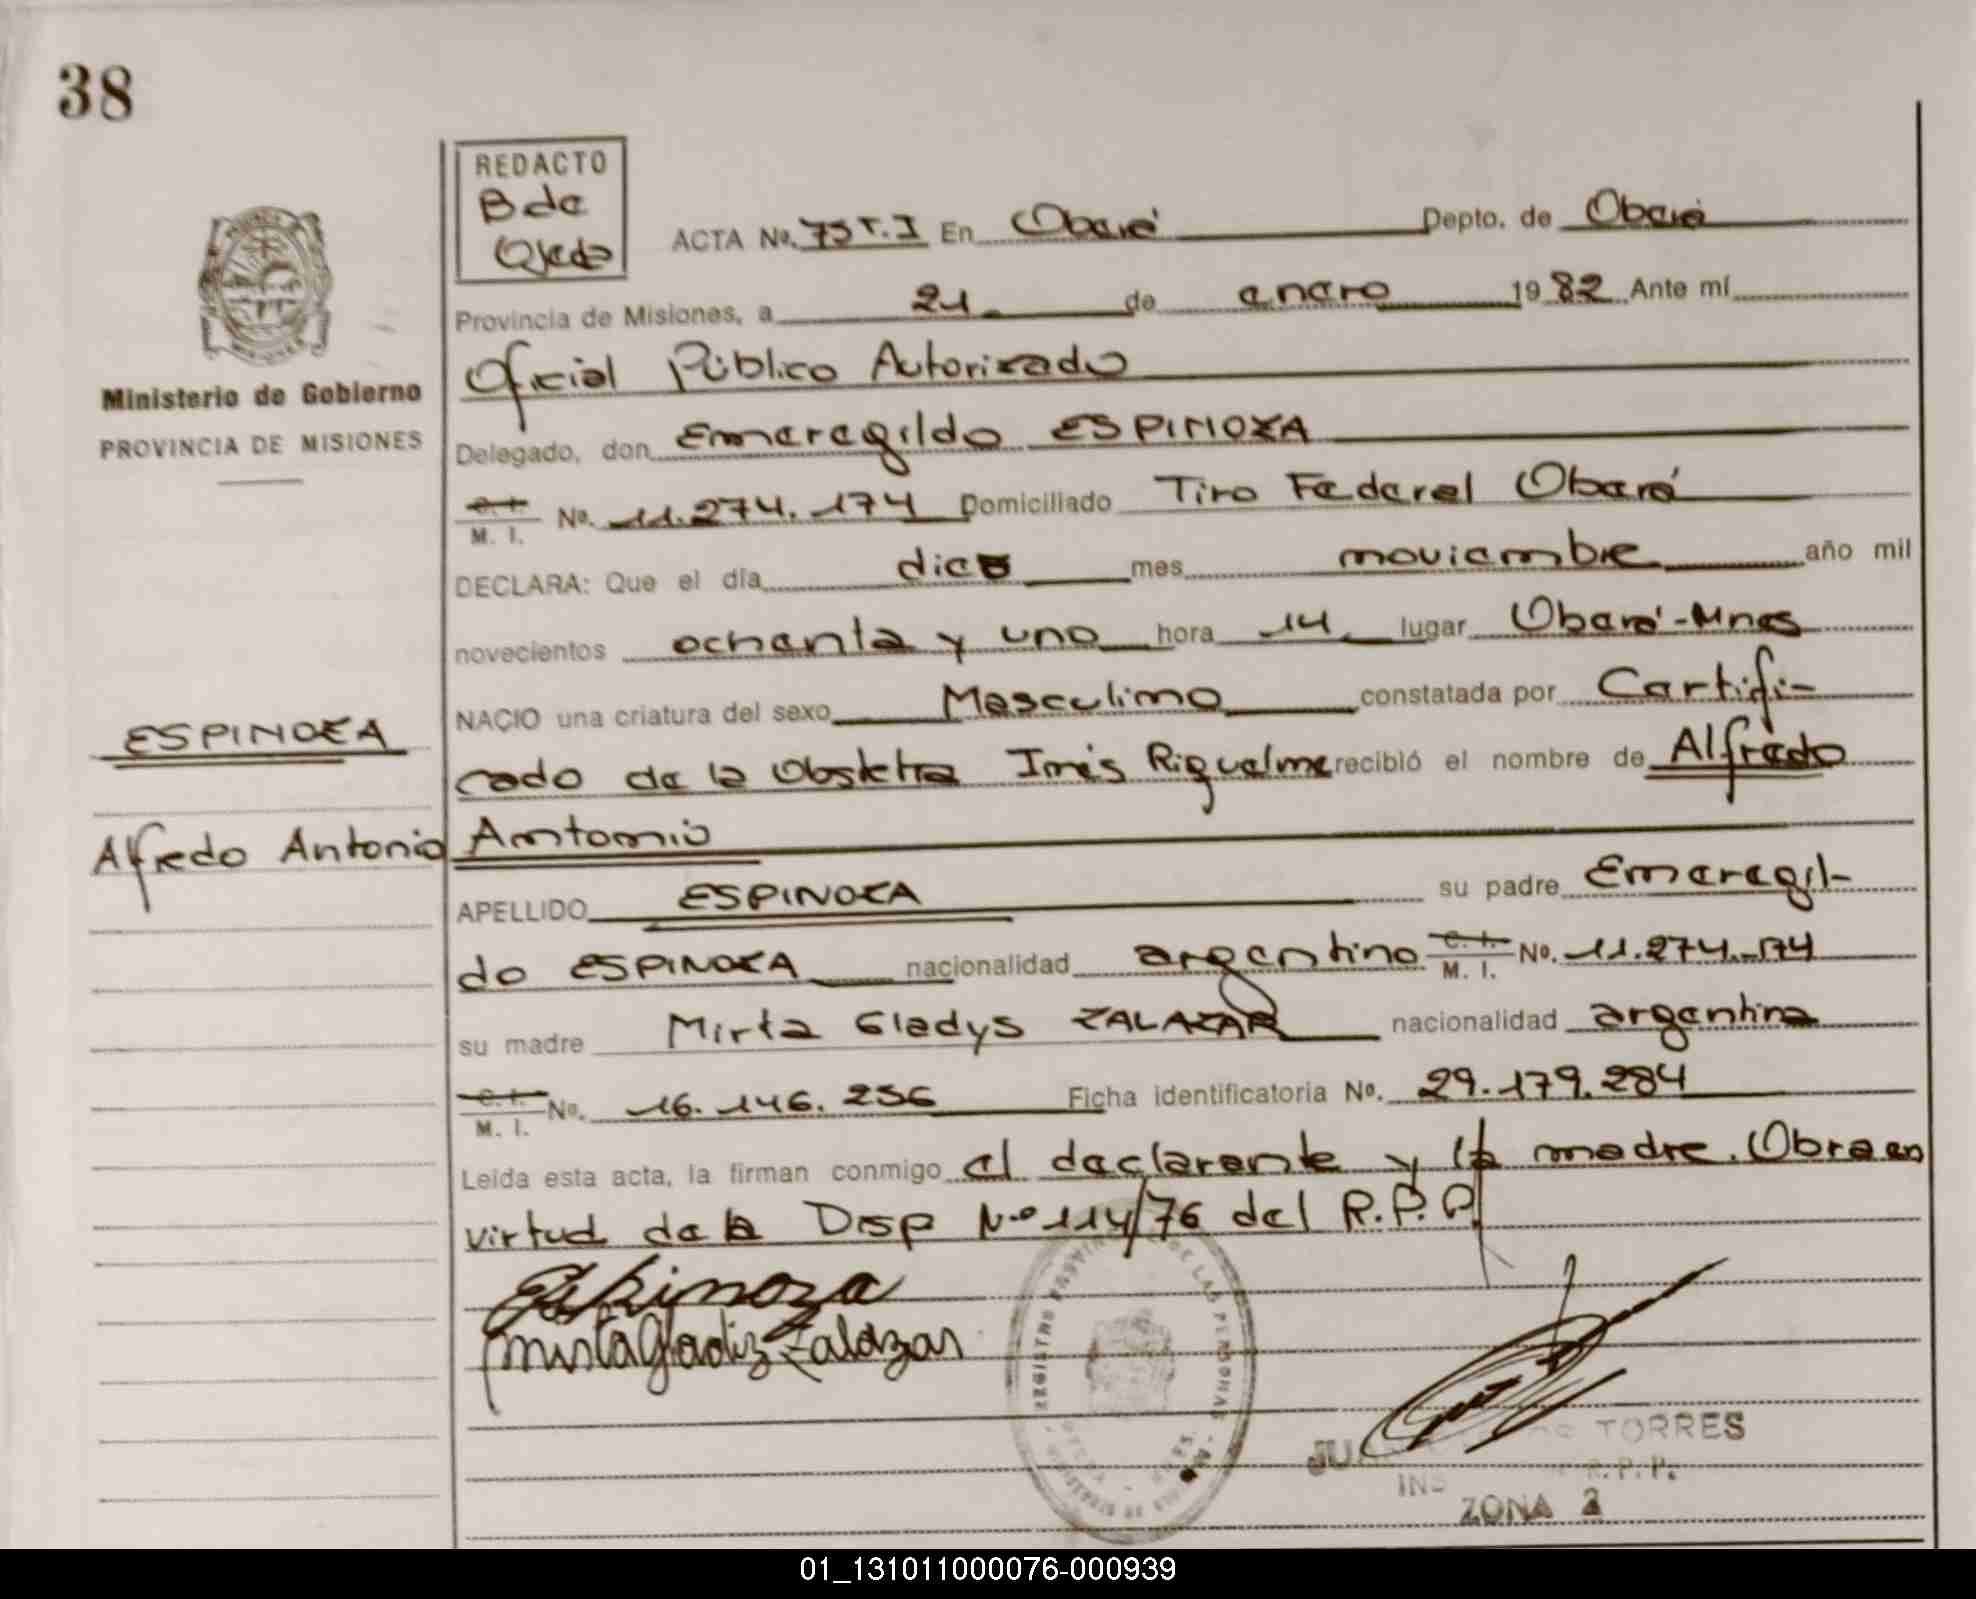 38
REDACTO
B de
Ojeda
ACTA No. 75 T.I En Oberá Depto. de Oberá
Provincia de Misiones, a 21 de enero 1982 Ante mí
Oficial Público Autorizado
Ministerio de Gobierno
PROVINCIA DE MISIONES
Delegado, don Emeregildo ESPINOZA
C. I.
M. I. No. 11.274.174 Domiciliado Tiro Federal Oberá
DECLARA: Que el día diez mes noviembre año mil
novecientos ochenta y uno hora 14 lugar Oberá-Mnes
NACIO una criatura del sexo Masculino constatada por Certifi-
cado de la Obstetra Inés Riquelme recibió el nombre de Alfredo
Antonio
ESPINOZA
Alfredo Antonio
APELLIDO ESPINOZA su padre Emeregil-
do ESPINOZA nacionalidad argentino C. I. M. I. No. 11.274.174
su madre Mirta Gladys ZALAZAR nacionalidad argentina
C. I.
M. I. No. 16.146.256 Ficha identificatoria No. 29.179.284
Leida esta acta, la firman conmigo el declarante y la madre. Obra en
virtud de la Disp Nº 114/76 del R.P.P.
Espinoza
mirta Gladiz Zalazar
REGISTRO PROVINCIAL DE LAS PERSONAS
TORRES
R.P.P.
ZONA 2
01_131011000076-000939